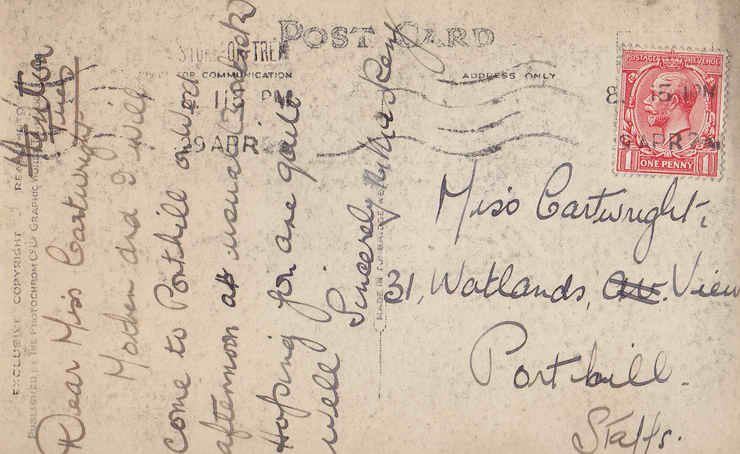 POST CARD
STOKE-ON-TREN
FOR COMMUNICATION
ADDRESS ONLY
11 PM
9 APR
8. 15 PM
9 APR 24
POSTAGE REVENUE
1 ONE PENNY 1
EXCLUSIVE COPYRIGHT
PUBLISHED BY THE PHOTOCHROM Co Ltd GRAPHIC
MADE IN
Tues
Dear Miss Cartwright
and I will
come to Porthill on Wed
afternoon at usual
Hoping you are quite
well
Sincerely
Miss Cartwright,
31, Watlands, Av. View
Porthill.
Staffs.